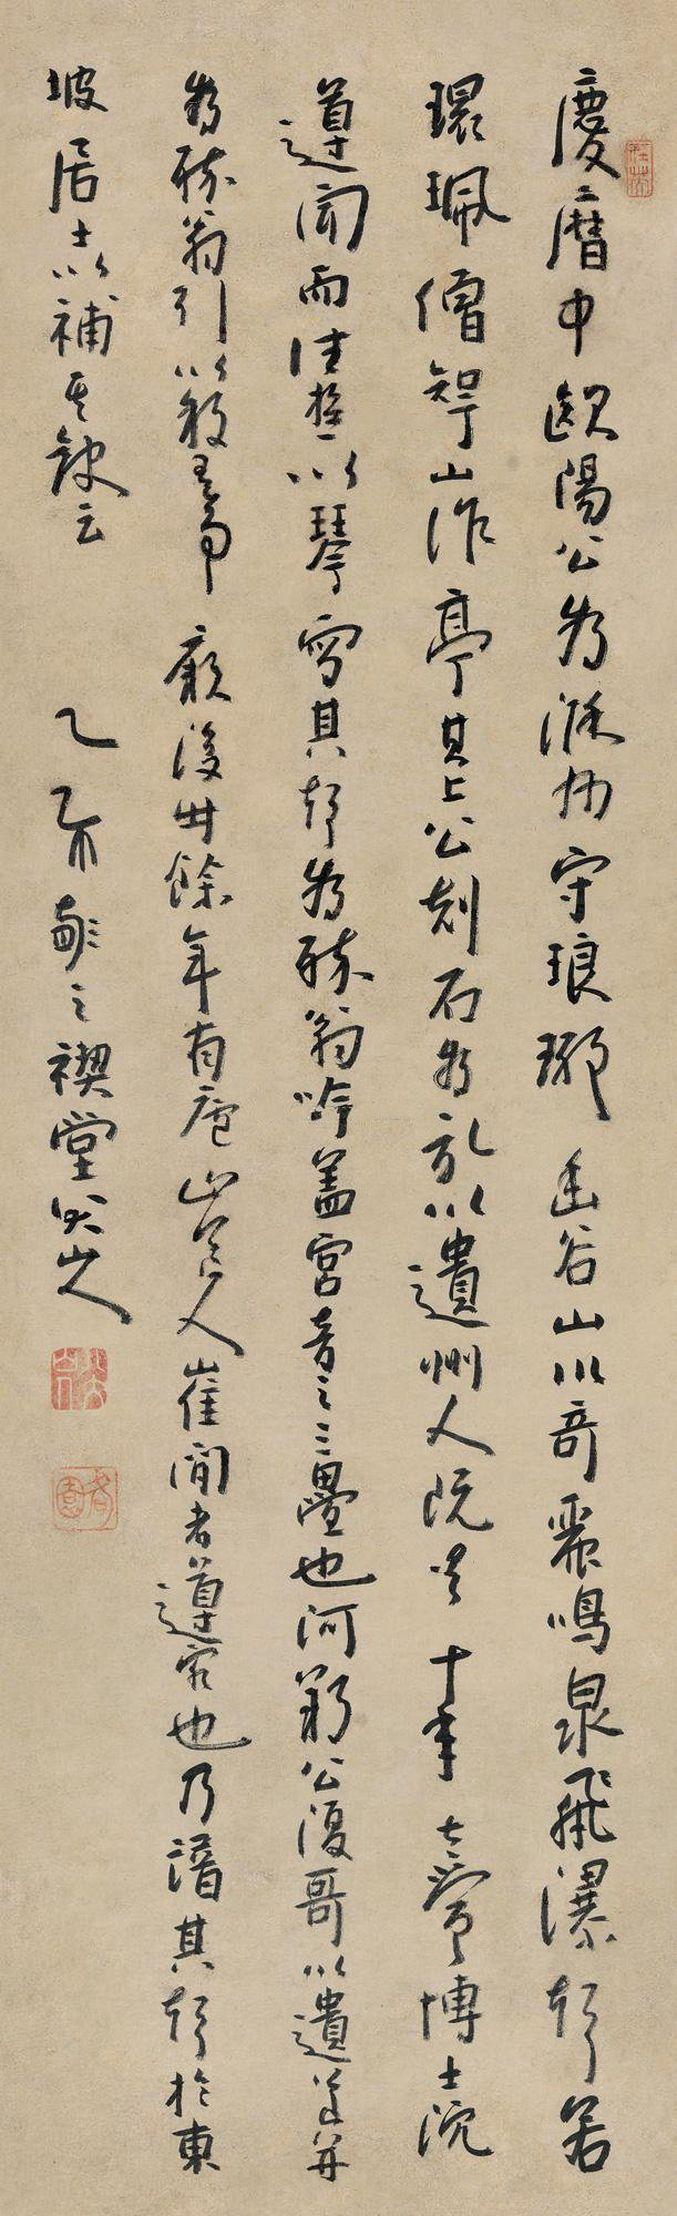 慶曆中歐陽公為滁州守琅琊幽谷山川奇麗鳴泉飛瀑聲若
環珮僧智仙作亭其上公刻石為記以遺州人既去十年太常博士沈
遵聞而往遊以琴寫其聲為醉翁吟蓋宮音之三疊也河朔公復歌以遺遵并
為醉翁引以敘其事厥後卅餘年有廬山道人崔閑者遵客也乃譜其聲於東
坡居士以補其缺云
乙酉之禊堂八大山人